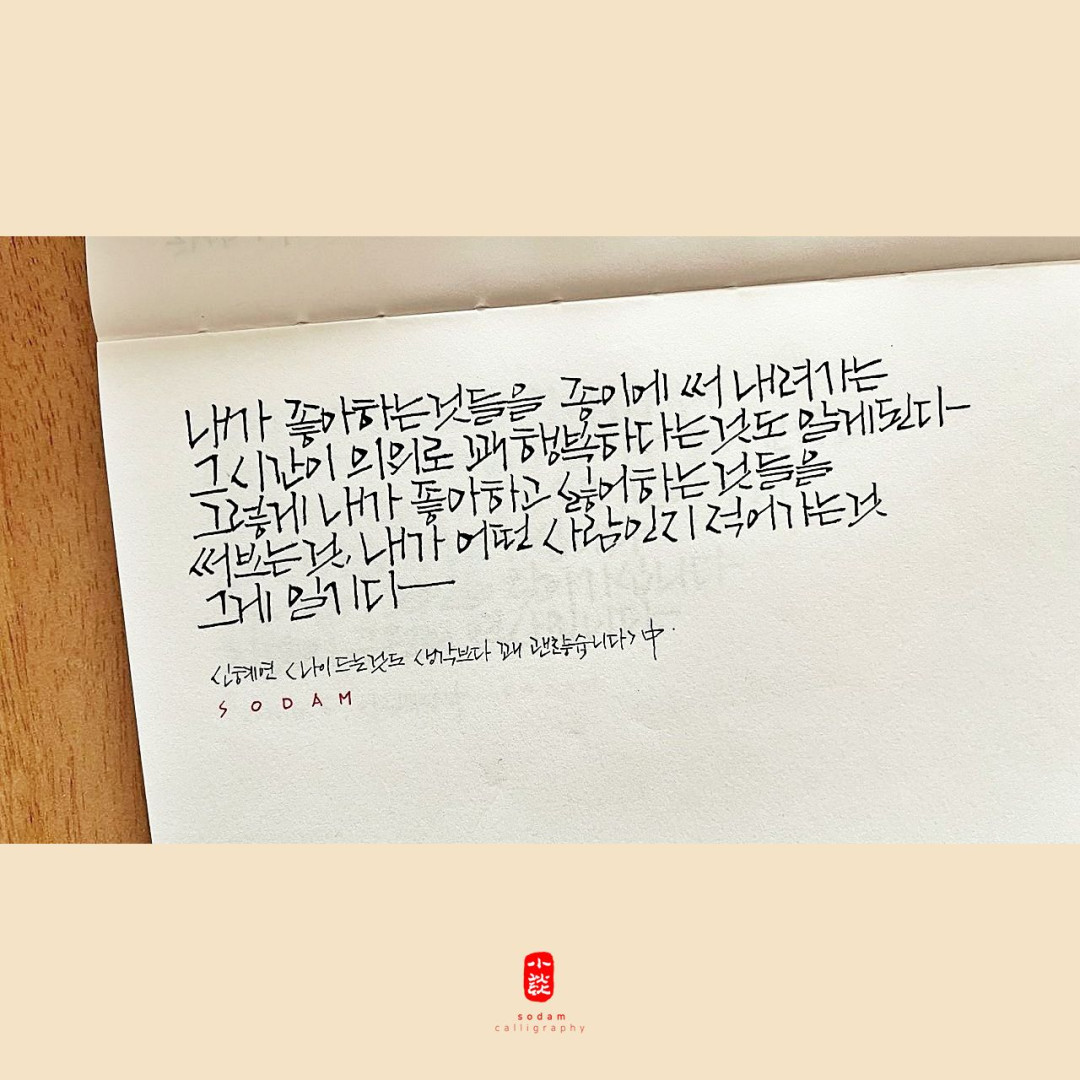 내가 좋아하는것들을 종이에 써 내려가는
그시간이 의외로 꽤 행복하다는것도 알게된다-
그렇게 내가 좋아하고 싫어하는것들을
써보는것, 내가 어떤 사람인지 적어가는것
그게 일기다—
신혜연 <나이드는것도 생각보다 꽤 괜찮습니다> 中.
SODAM
小談
sodam
calligraphy